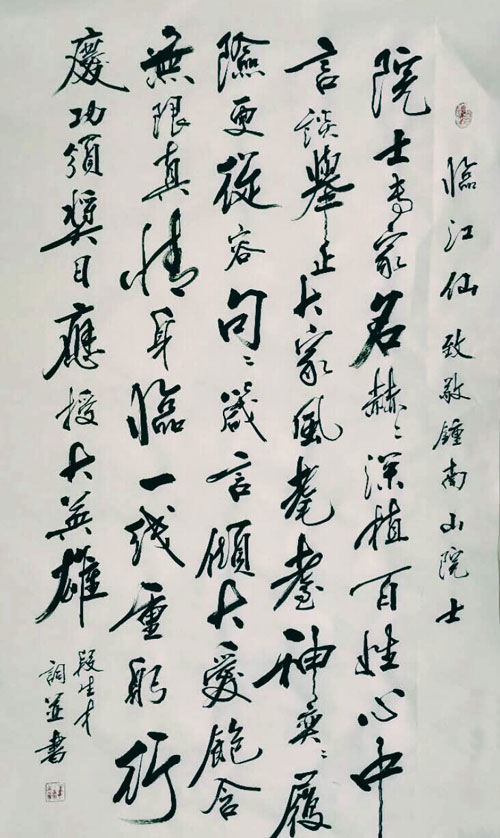 臨江仙 致敬鍾南山院士
院士專家名赫〻深植百姓心中
言談舉止大家風耄耋神奕〻履
險更從容句〻箴言傾大愛飽含
無限真情身臨一线重躬行
慶功頒獎日應授大英雄
段生才
詞並書